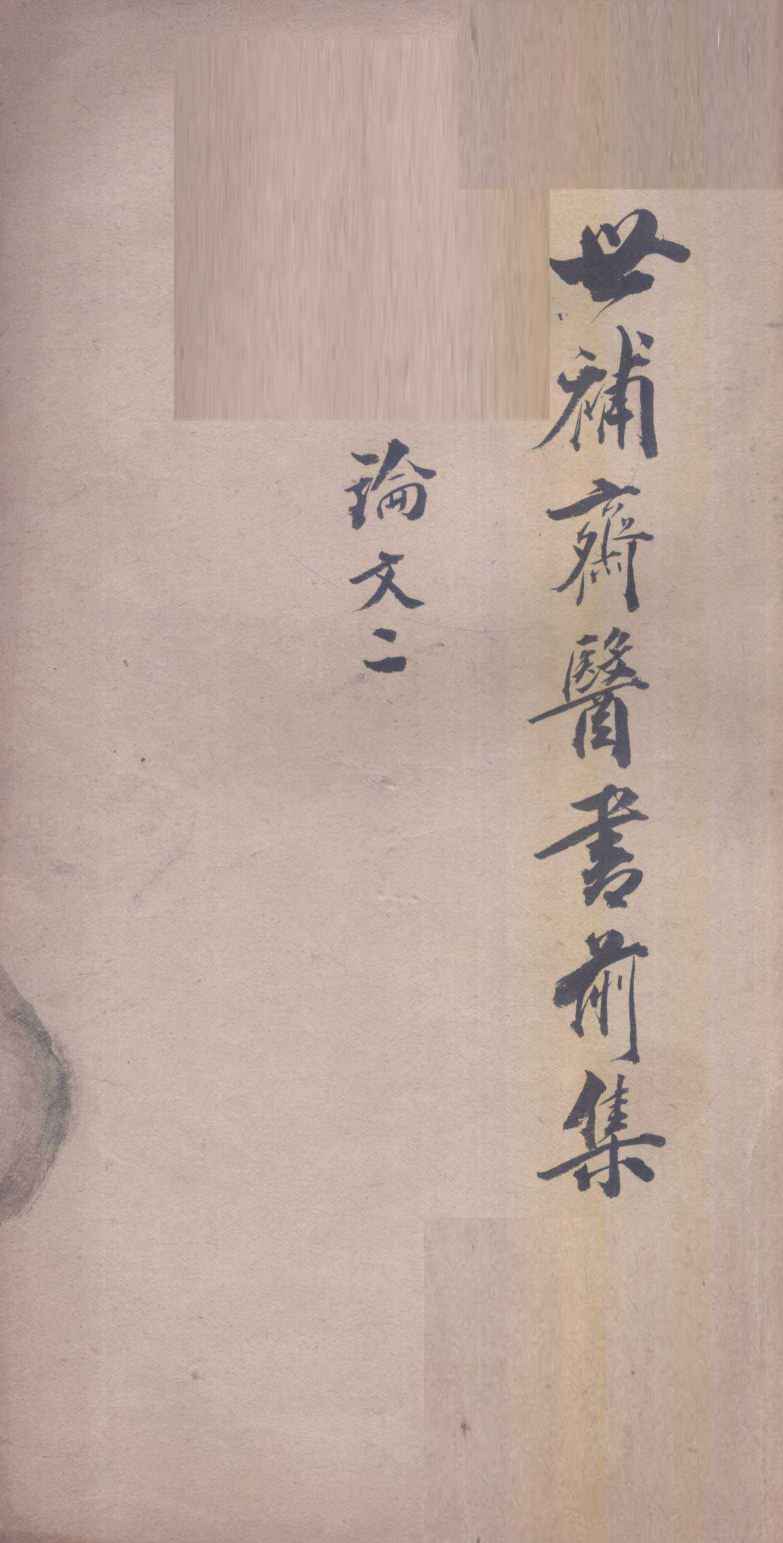 世補齋醫書前集
論文二